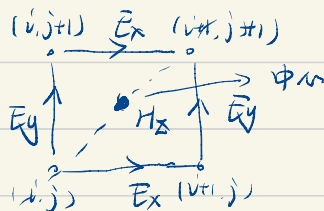 (i,j+1) Ex (i+1,j+1)
中心
Ey Hz Ey
(i,j) Ex (i+1,j)